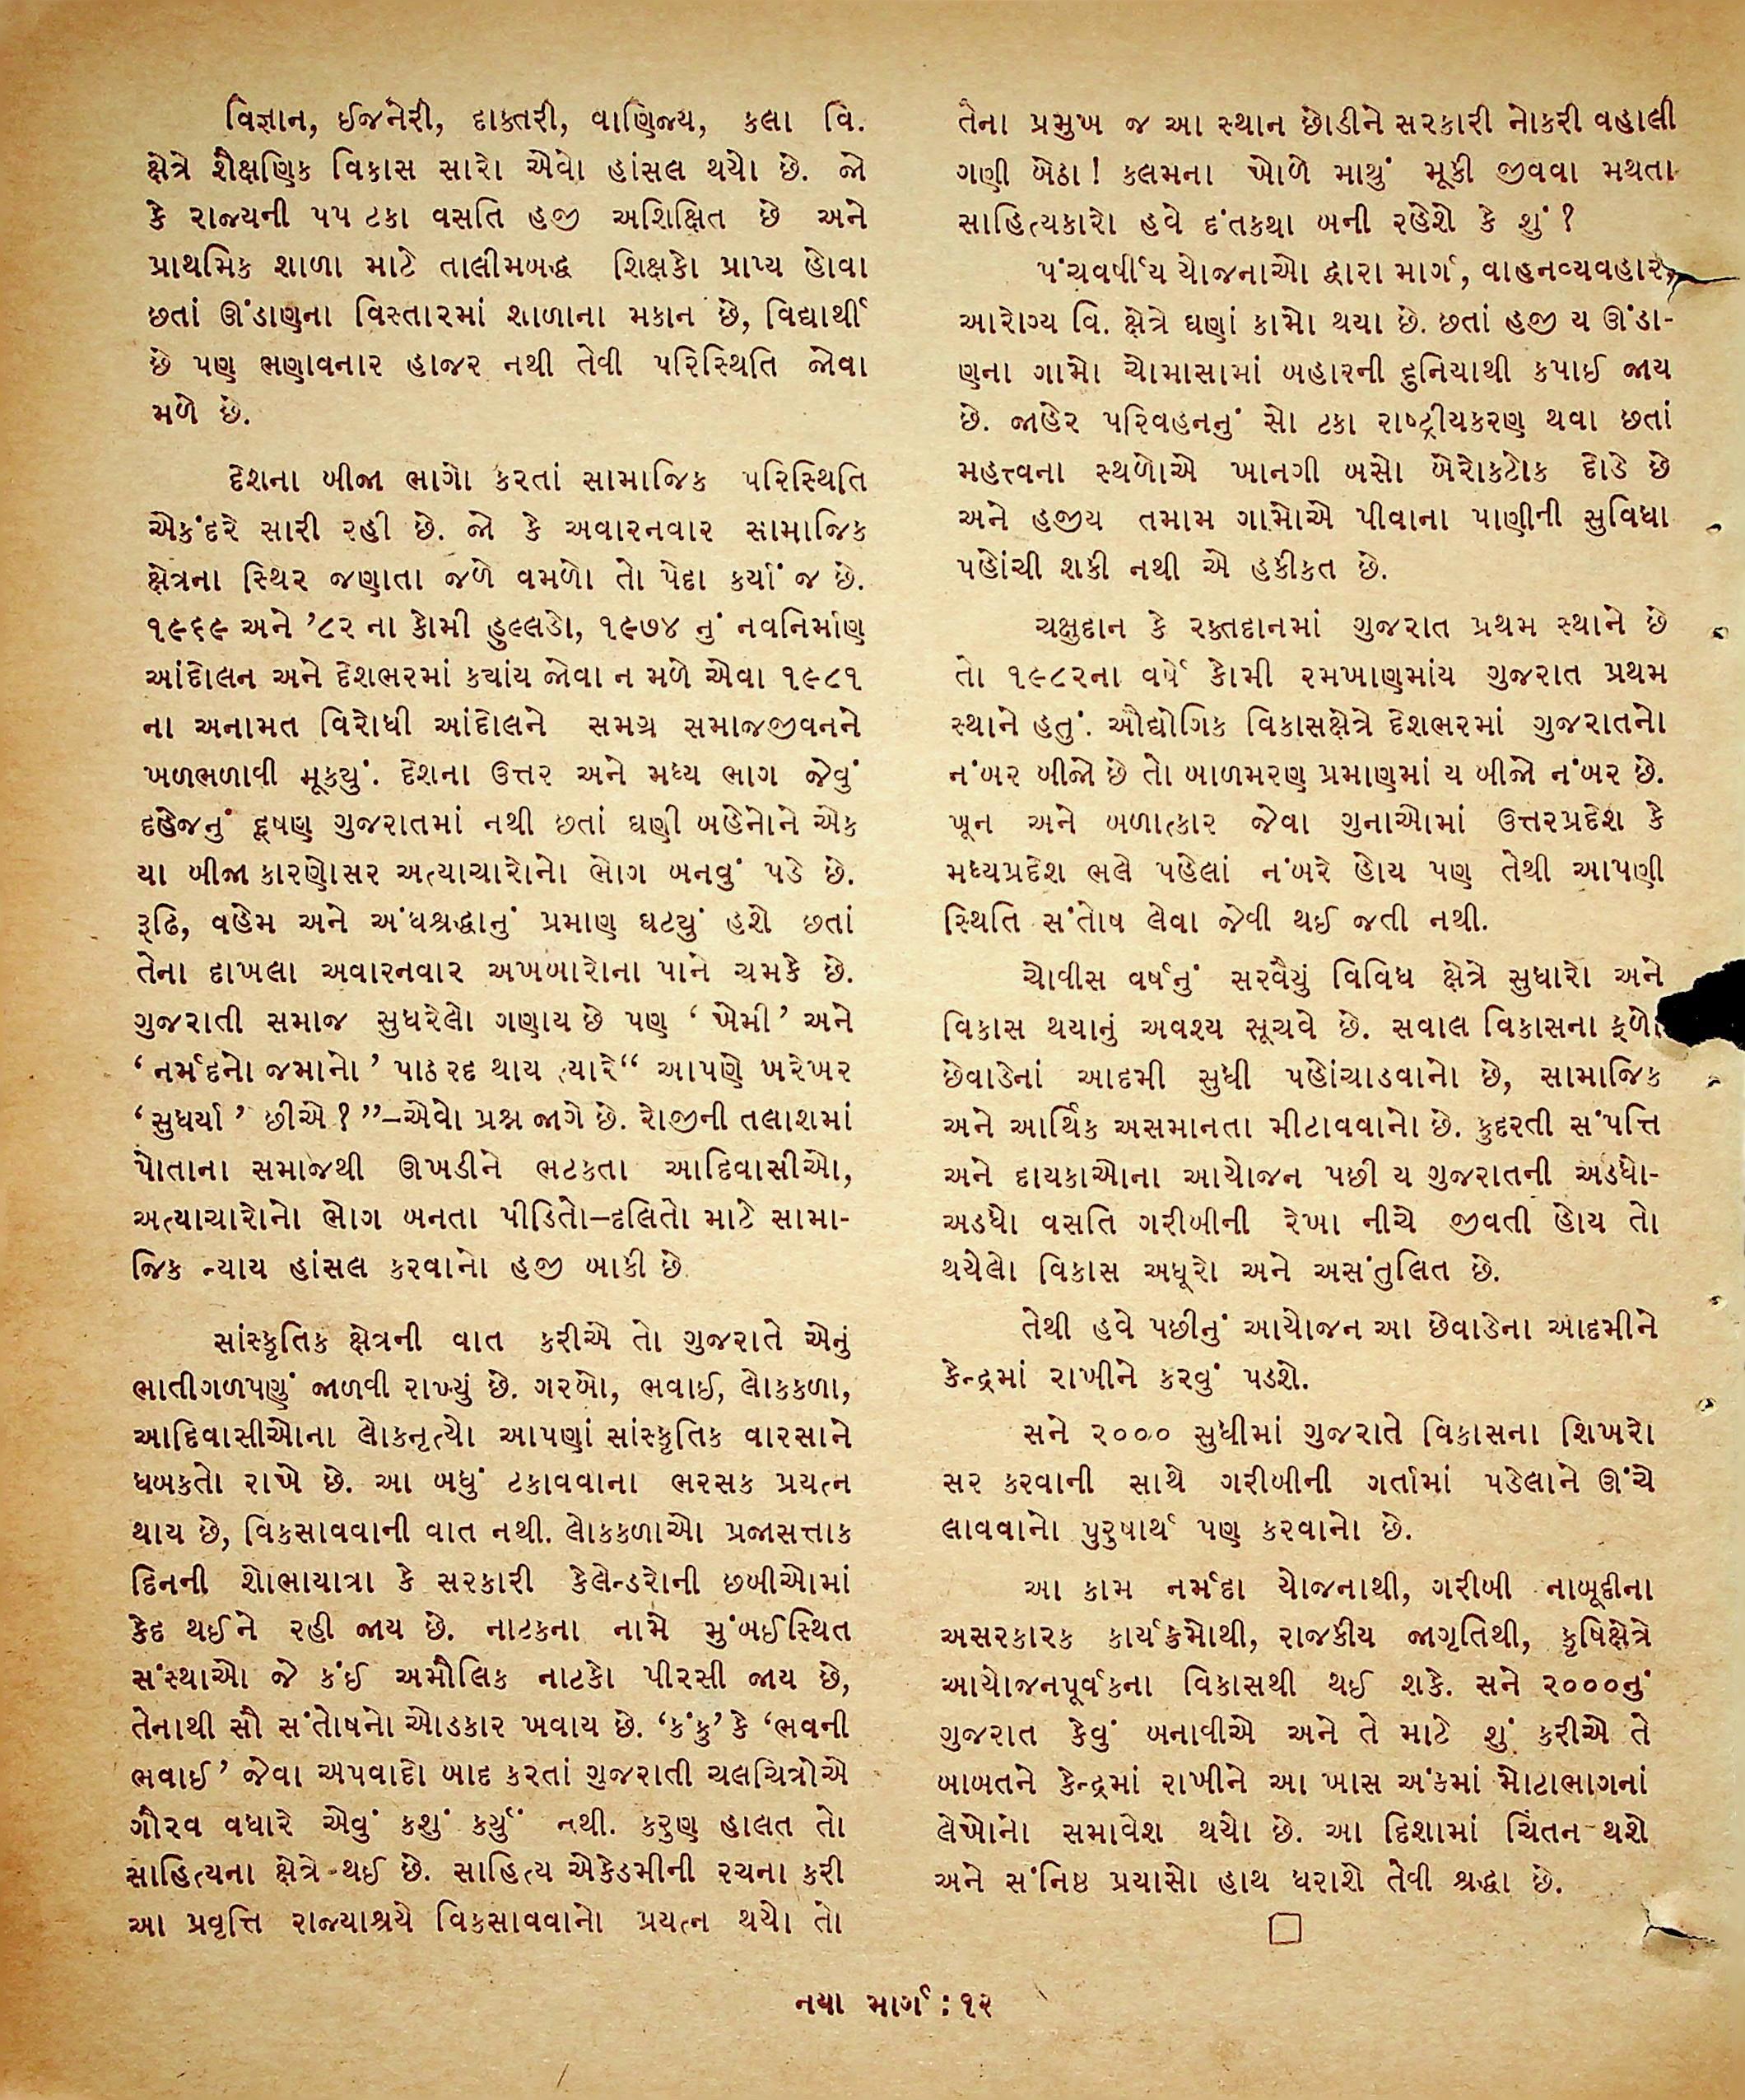 વિજ્ઞાન, ઈજનેરી, દાક્તરી, વાણિજ્ય, કલા વિ.
ક્ષેત્રે શૈક્ષણિક વિકાસ સારો એવો હાંસલ થયો છે. જો
કે રાજ્યની ૫૫ ટકા વસતિ હજી અશિક્ષિત છે અને
પ્રાથમિક શાળા માટે તાલીમબદ્ધ શિક્ષકો પ્રાપ્ય હોવા
છતાં ઊંડાણના વિસ્તારમાં શાળાના મકાન છે, વિદ્યાર્થી
છે પણ ભણાવનાર હાજર નથી તેવી પરિસ્થિતિ જોવા
મળે છે.
દેશના બીજા ભાગો કરતાં સામાજિક પરિસ્થિતિ
એકંદરે સારી રહી છે. જો કે અવારનવાર સામાજિક
ક્ષેત્રના સ્થિર જણાતા જળે વમળો તો પેદા કર્યાં જ છે.
૧૯૬૯ અને ’૮૨ ના કોમી હુલ્લડો, ૧૯૭૪ નું નવનિર્માણ
આંદોલન અને દેશભરમાં ક્યાંય જોવા ન મળે એવા ૧૯૮૧
ના અનામત વિરોધી આંદોલને સમગ્ર સમાજજીવનને
ખળભળાવી મૂક્યું. દેશના ઉત્તર અને મધ્ય ભાગ જેવું
દહેજનું દૂષણ ગુજરાતમાં નથી છતાં ઘણી બહેનોને એક
યા બીજા કારણોસર અત્યાચારોનો ભોગ બનવું પડે છે.
રૂઢિ, વહેમ અને અંધશ્રદ્ધાનું પ્રમાણ ઘટ્યું હશે છતાં
તેના દાખલા અવારનવાર અખબારોના પાને ચમકે છે.
ગુજરાતી સમાજ સુધરેલો ગણાય છે પણ ‘ ખેમી ’ અને
‘ નર્મદનો જમાનો ’ પાઠ રદ થાય ત્યારે “ આપણે ખરેખર
‘ સુધર્યા ’ છીએ ? ”–એવો પ્રશ્ન જાગે છે. રોજીની તલાશમાં
પોતાના સમાજથી ઊખડીને ભટકતા આદિવાસીઓ,
અત્યાચારોનો ભોગ બનતા પીડિતો–દલિતો માટે સામા-
જિક ન્યાય હાંસલ કરવાનો હજી બાકી છે.
સાંસ્કૃતિક ક્ષેત્રની વાત કરીએ તો ગુજરાતે એનું
ભાતીગળપણું જાળવી રાખ્યું છે. ગરબો, ભવાઈ, લોકકળા,
આદિવાસીઓના લોકનૃત્યો આપણાં સાંસ્કૃતિક વારસાને
ધબકતો રાખે છે. આ બધું ટકાવવાના ભરસક પ્રયત્ન
થાય છે, વિકસાવવાની વાત નથી. લોકકળાઓ પ્રજાસત્તાક
દિનની શોભાયાત્રા કે સરકારી કેલેન્ડરોની છબીઓમાં
કેદ થઈને રહી જાય છે. નાટકના નામે મુંબઈસ્થિત
સંસ્થાઓ જે કંઈ અમૌલિક નાટકો પીરસી જાય છે,
તેનાથી સૌ સંતોષનો ઓડકાર ખવાય છે. ‘કંકુ’ કે ‘ભવની
ભવાઈ ’ જેવા અપવાદો બાદ કરતાં ગુજરાતી ચલચિત્રોએ
ગૌરવ વધારે એવું કશું કર્યું નથી. કરુણ હાલત તો
સાહિત્યના ક્ષેત્રે થઈ છે. સાહિત્ય એકેડમીની રચના કરી
આ પ્રવૃત્તિ રાજ્યાશ્રયે વિકસાવવાનો પ્રયત્ન થયો તો
તેના પ્રમુખ જ આ સ્થાન છોડીને સરકારી નોકરી વહાલી
ગણી બેઠા ! કલમના ખોળે માથું મૂકી જીવવા મથતા
સાહિત્યકારો હવે દંતકથા બની રહેશે કે શું ?
પંચવર્ષીય યોજનાઓ દ્વારા માર્ગ, વાહનવ્યવહાર,
આરોગ્ય વિ. ક્ષેત્રે ઘણાં કામો થયા છે. છતાં હજી ય ઊંડા-
ણના ગામો ચોમાસામાં બહારની દુનિયાથી કપાઈ જાય
છે. જાહેર પરિવહનનું સો ટકા રાષ્ટ્રીયકરણ થવા છતાં
મહત્ત્વના સ્થળોએ ખાનગી બસો બેરોકટોક દોડે છે
અને હજીય તમામ ગામોએ પીવાના પાણીની સુવિધા
પહોંચી શકી નથી એ હકીકત છે.
ચક્ષુદાન કે રક્તદાનમાં ગુજરાત પ્રથમ સ્થાને છે
તો ૧૯૮૨ના વર્ષે કોમી રમખાણમાંય ગુજરાત પ્રથમ
સ્થાને હતું. ઔદ્યોગિક વિકાસક્ષેત્રે દેશભરમાં ગુજરાતનો
નંબર બીજો છે તો બાળમરણ પ્રમાણમાં ય બીજો નંબર છે.
ખૂન અને બળાત્કાર જેવા ગુનાઓમાં ઉત્તરપ્રદેશ કે
મધ્યપ્રદેશ ભલે પહેલાં નંબરે હોય પણ તેથી આપણી
સ્થિતિ સંતોષ લેવા જેવી થઈ જતી નથી.
ચોવીસ વર્ષનું સરવૈયું વિવિધ ક્ષેત્રે સુધારો અને
વિકાસ થયાનું અવશ્ય સૂચવે છે. સવાલ વિકાસના ફળો
છેવાડેનાં આદમી સુધી પહોંચાડવાનો છે, સામાજિક
અને આર્થિક અસમાનતા મીટાવવાનો છે. કુદરતી સંપત્તિ
અને દાયકાઓના આયોજન પછી ય ગુજરાતની અડધો-
અડધો વસતિ ગરીબીની રેખા નીચે જીવતી હોય તો
થયેલો વિકાસ અધૂરો અને અસંતુલિત છે.
તેથી હવે પછીનું આયોજન આ છેવાડેના આદમીને
કેન્દ્રમાં રાખીને કરવું પડશે.
સને ૨૦૦૦ સુધીમાં ગુજરાતે વિકાસના શિખરો
સર કરવાની સાથે ગરીબીની ગર્તામાં પડેલાને ઊંચે
લાવવાનો પુરુષાર્થ પણ કરવાનો છે.
આ કામ નર્મદા યોજનાથી, ગરીબી નાબૂદીના
અસરકારક કાર્યક્રમોથી, રાજકીય જાગૃતિથી, કૃષિક્ષેત્રે
આયોજનપૂર્વકના વિકાસથી થઈ શકે. સને ૨૦૦૦નું
ગુજરાત કેવું બનાવીએ અને તે માટે શું કરીએ તે
બાબતને કેન્દ્રમાં રાખીને આ ખાસ અંકમાં મોટાભાગનાં
લેખોનો સમાવેશ થયો છે. આ દિશામાં ચિંતન થશે
અને સંનિષ્ઠ પ્રયાસો હાથ ધરાશે તેવી શ્રદ્ધા છે.
નયા માર્ગ : ૧૨